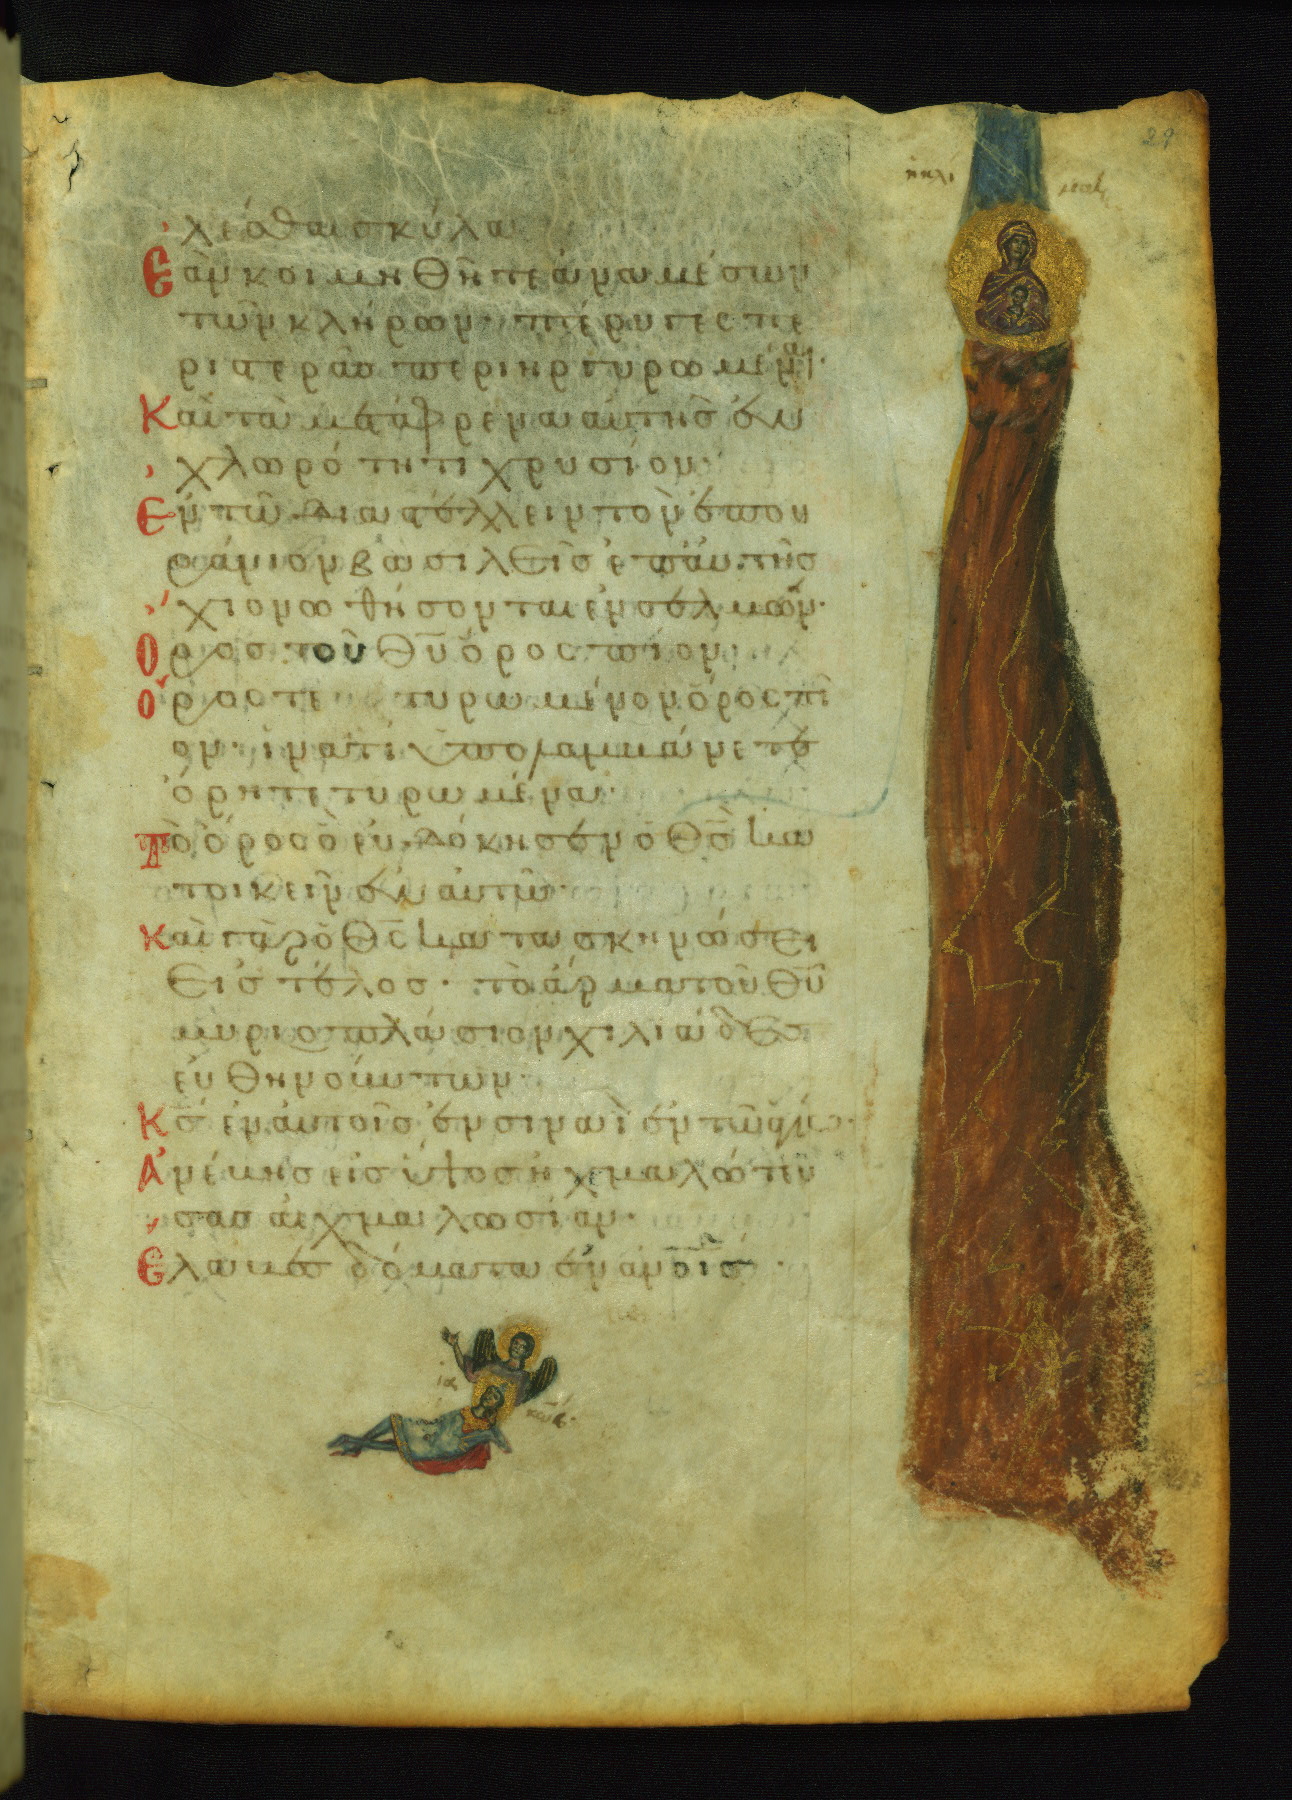 29
ἡ κλί μαξ
λέσθαι σκύλα
Ἐὰν κοιμηθῆτε ἀνὰ μέσον
τῶν κλήρων· πτέρυγες πε
ριστερᾶς περιηργυρωμέναι·
Καὶ τὰ μετάφρενα αὐτῆς ἐν
χλωρότητι χρυσίου·
Ἐν τῷ διαστέλλειν τὸν ἐπου
ράνιον βασιλεῖς ἐπ' αὐτῆς
χιονωθήσονται ἐν σελμών·
Ὄρος τοῦ Θῦ ὄρος πῖον·
Ὄρος τε τυρωμένον ὄρος πῖ
ον· ἱνατί ὑπολαμβάνετε
ὄρη τετυρωμένα·
Τὸ ὄρος ὃ εὐδόκησεν ὁ Θς̄ κα
τοικεῖν ἐν αὐτῷ·
Καὶ γὰρ ὁ Θς̄ κατασκηνώσει
εἰς τέλος· τὸ ἅρμα τοῦ Θῦ
μυριοπλάσιον χιλιάδες
εὐθηνούντων·
Κς̄ ἐν αὐτοῖς ἐν σινᾶ ἐν τῷ ἁγίῳ·
Ἀνέβης εἰς ὕψος ᾐχμαλώτευ
σας αἰχμαλωσίαν·
Ἔλαβες δόματα ἐν ἀνοις·
ἰα κώβ